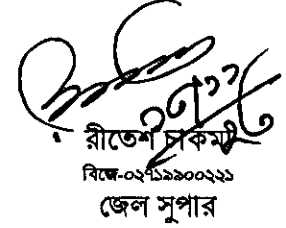 রীতেশ চাকমা
বিজে-০২৭১৯৯০০২২১
জেল সুপার